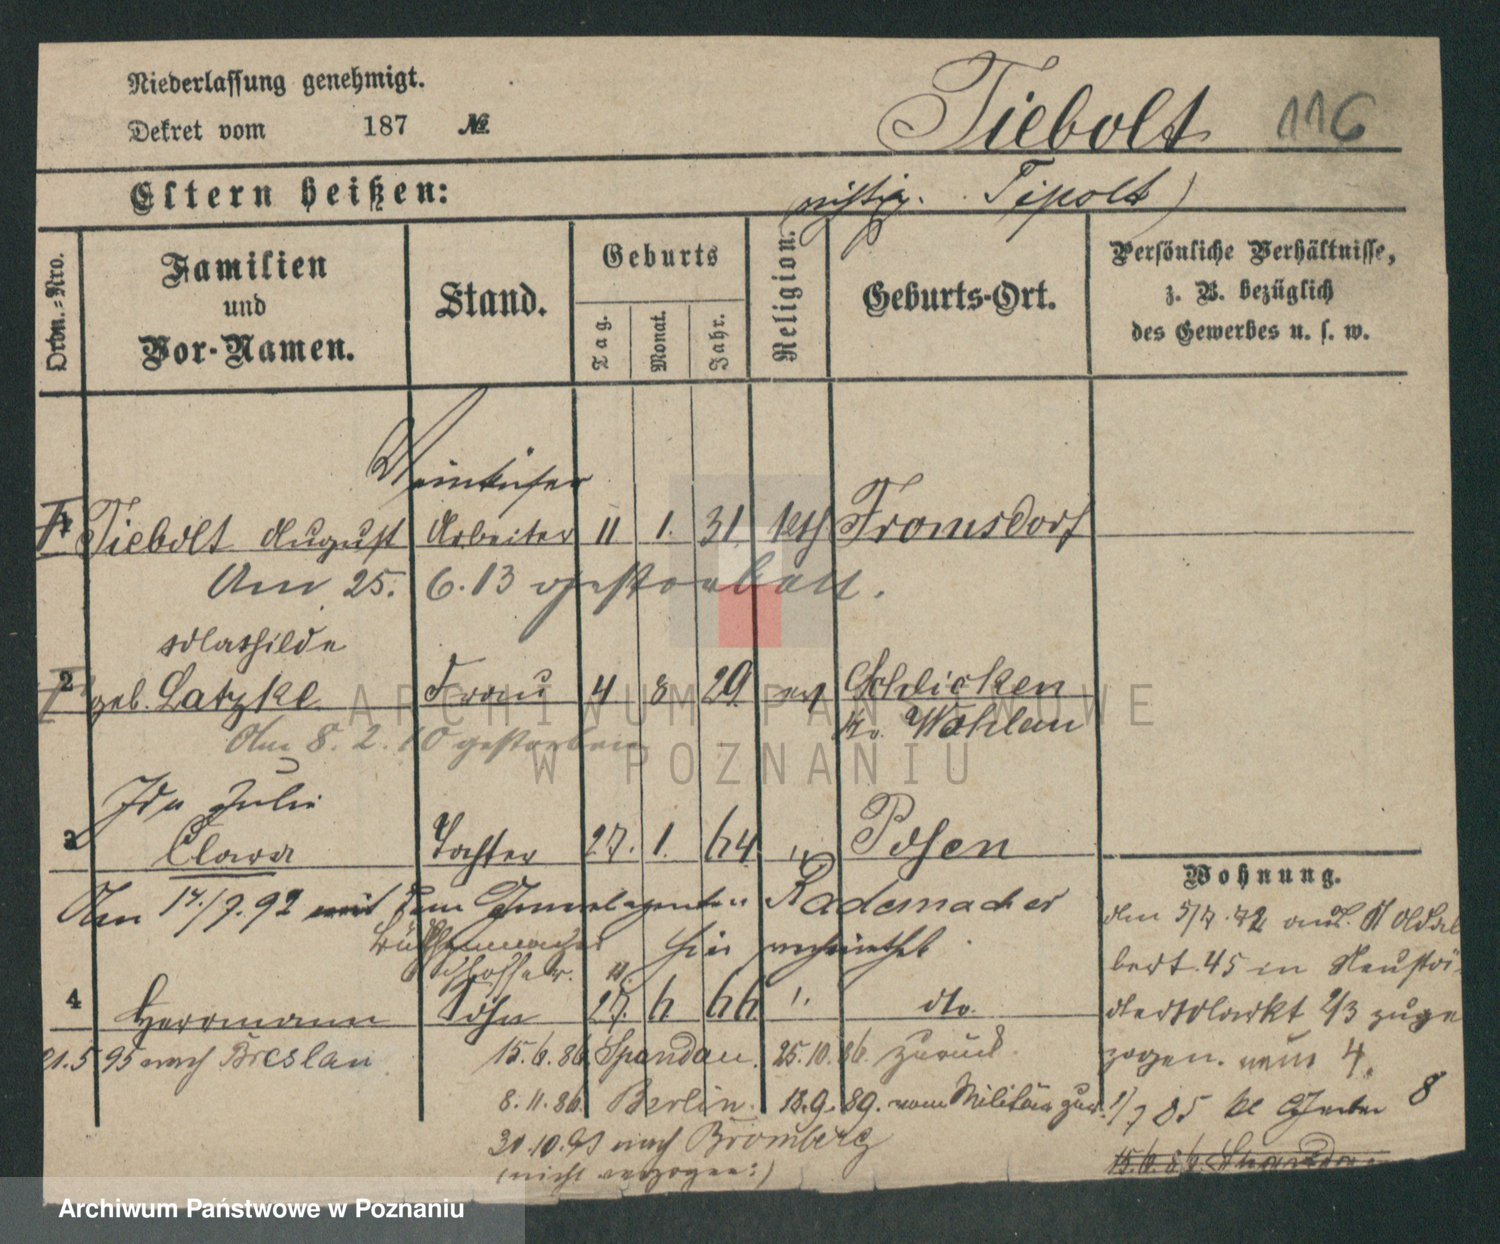 Niederlassung genehmigt.
Dekret vom 187 №
Tiebolt 116
Eltern heißen:
richtig. Tipolt)
Ordn.-Nro.
Familien und Vor-Namen.
Stand.
Geburts
Tag.
Monat.
Jahr.
Religion.
Geburts-Ort.
Persönliche Verhältnisse,
z. B. bezüglich
des Gewerbes u. s. w.
Weinküfer
1 Tiebolt August Arbeiter 11 1. 31 kth Fromsdorf
Am 25. 6. 13 gestorben.
Mathilde
2 geb. Latzke Frau 4 8 29 ev Schlicken
Kr. Wohlau
Am 8. 2. 10 gestorben
Ida Julie
3 Clara Tochter 27. 1. 64 " Posen
Am 14./7. 92 mit dem Rademacher
hier verheirathet.
Büchsenmacher
Schlosser.
4 Herrmann Sohn 27. 6 66 " dto.
21.5 95 nach Breslau
15.6.86 Spandau. 25.10.86 zurück.
8.11.86 Berlin. 18.9.89. vom Militär zur.
30.10.93 nach Bromberg
(nicht verzogen:)
Wohnung.
Am 5/7. 72 aus St Adal
bert 45 in Neustäd
terMarkt 2/3 zuge
zogen. neue 4.
1/7 85 kl Gerber 8
15.6.86 Spandau
ARCHIWUM PAŃSTWOWE
W POZNANIU
Archiwum Państwowe w Poznaniu